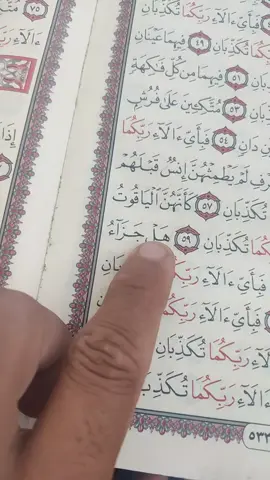 فَبِأَيِّ ءَالَآءِ رَبِّكُمَا تُكَذِّبَانِ
تُكَذِّبَانِ ٤٩ فِيهِمَا عَيْنَانِ
٥١ فِيهِمَا مِن كُلِّ فَٰكِهَةٍ
٥٣ مُتَّكِـِٔينَ عَلَىٰ فُرُشٍۭ
دَانٍ ٥٤ فَبِأَيِّ ءَالَآءِ رَبِّكُمَا
لَمْ يَطْمِثْهُنَّ إِنسٌ قَبْلَهُمْ
تُكَذِّبَانِ ٥٧ كَأَنَّهُنَّ ٱلْيَاقُوتُ
تُكَذِّبَانِ ٥٩ هَلْ جَزَآءُ
فَبِأَيِّ ءَالَآءِ
فَبِأَيِّ ءَالَآءِ
ءَالَآءِ رَبِّكُمَا تُكَذِّبَانِ
ءَالَآءِ رَبِّكُمَا تُكَذِّبَانِ
٥٣٣
٧٥
ءَالَآءِ
إِذَا